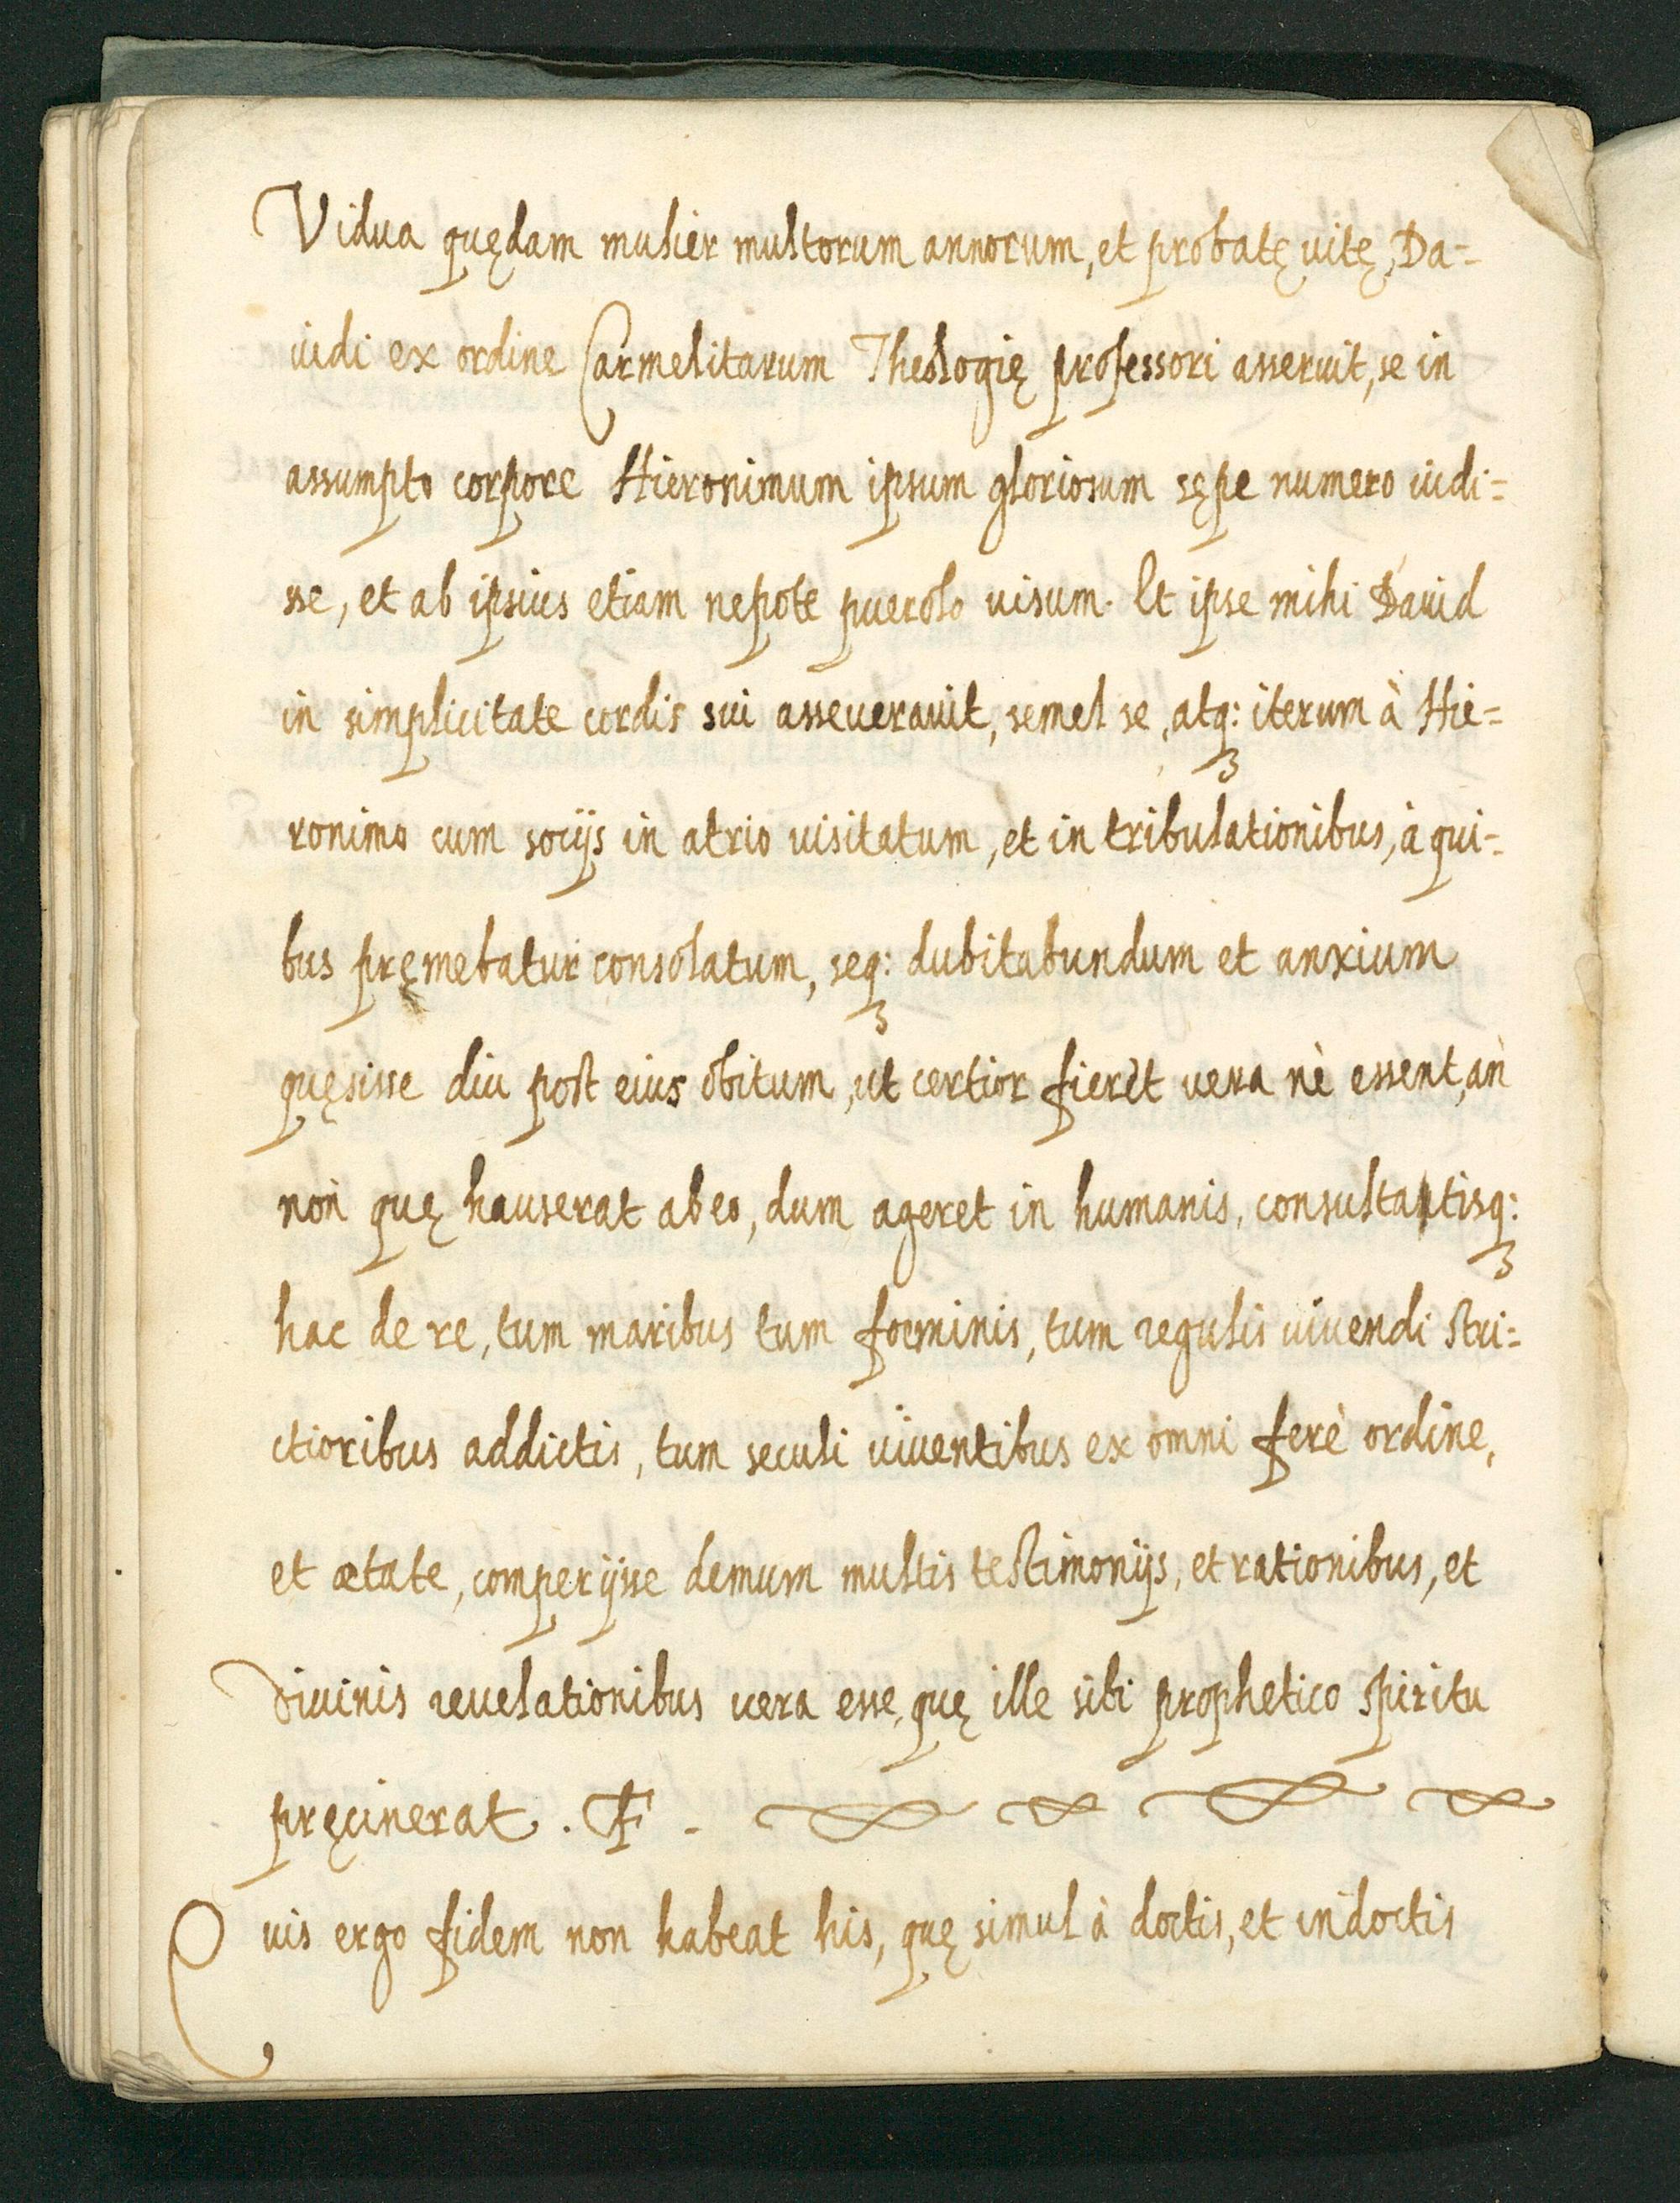 Vidua quędam mulier multorum annorum, et probatę uitę, Da=
uidi ex ordine Carmelitarum Theologię professori asseruit, se in
assumpto corpore Hieronimum ipsum gloriosum sępe numero uidi=
sse, et ab ipsius etiam nepote puerolo uisum. Et ipse mihi Dauid
in simplicitate cordis sui asseuerauit, semel se, atq: iterum à Hie=
ronimo cum socijs in atrio uisitatum, et in tribulationibus, à qui=
bus pręmebatur consolatum, seq: dubitabundum et anxium
quęsisse diu post eius obitum, ut certior fieret uera nè essent, an
non quę hauserat ab eo, dum ageret in humanis, consultatisq:
hac de re, tum maribus tum foeminis, tum regulis uiuendi stri=
ctioribus addictis, tum seculi uiuentibus ex omni ferè ordine,
et ætate, comperijsse demum multis testimonijs, et rationibus, et
diuinis reuelationibus uera esse, quę ille sibi prophetico spiritu
pręcinerat. F.
Quis ergo fidem non habeat his, quę simul à doctis, et indoctis